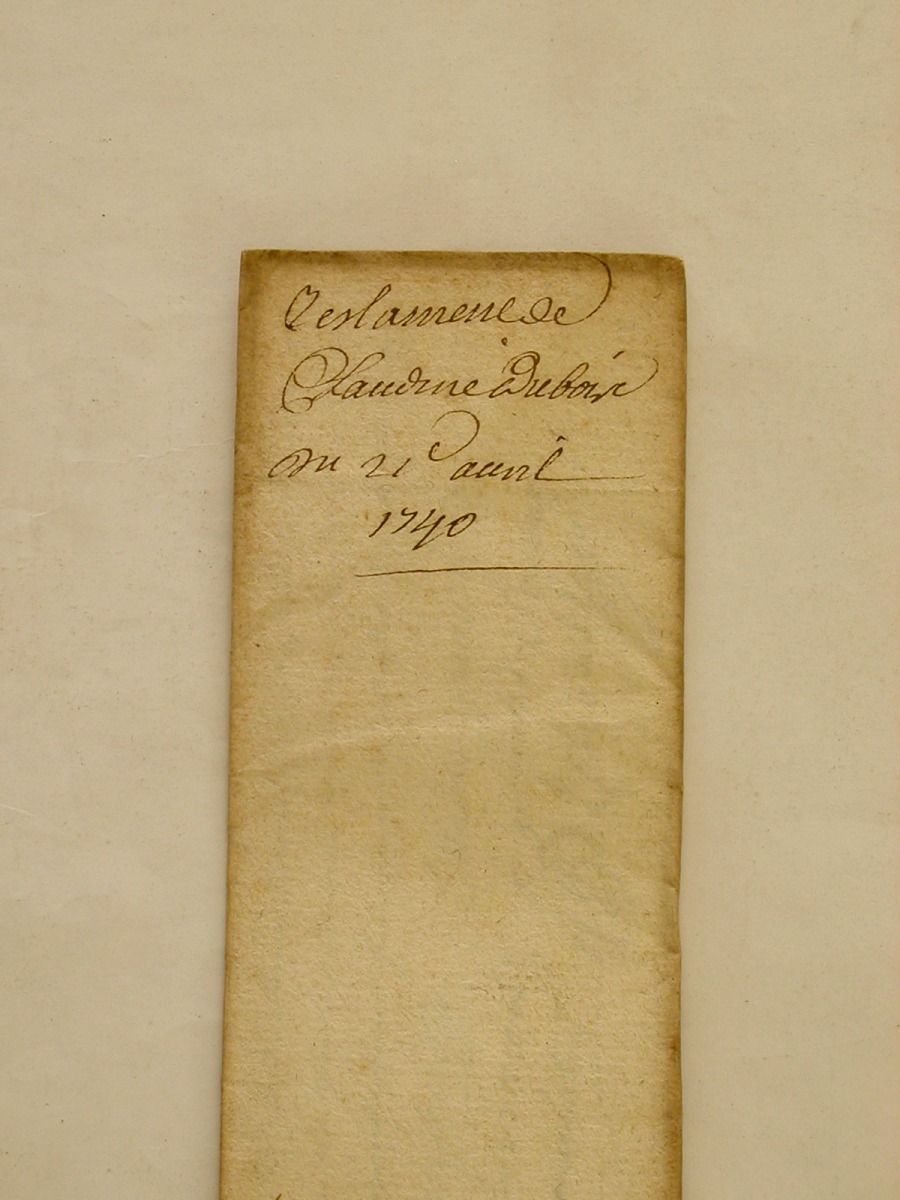 Testament de
Claudine Dubois
du 21e auril
1740